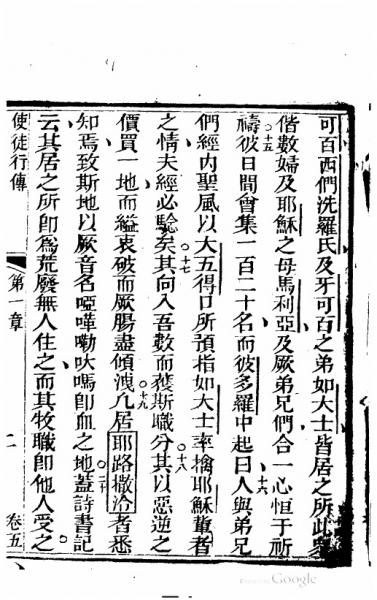 可百西們洗羅氏及牙可百之弟如大士皆居之所此眾
偕數婦及耶穌之母馬利亞及厥弟兄們合一心恒于祈
十五
禱彼日間會集一百二十名而彼多羅中起曰人與弟兄
十六
們經內聖風以大五得口所預指如大士率擒耶穌輩者
十七
之情夫經必驗矣其向入吾數而獲斯職分其以惡逆之
十八
價買一地而縊衷破而厥腸盡傾洩凡居耶路撒冷者悉
十九
知焉致斯地以厥音名啞嘩嘞吠嗎即血之地蓋詩書記
二十
云其居之所即為荒廢無人住之而其牧職即他人受之
使徒行傳
第一章
二
卷五
Google